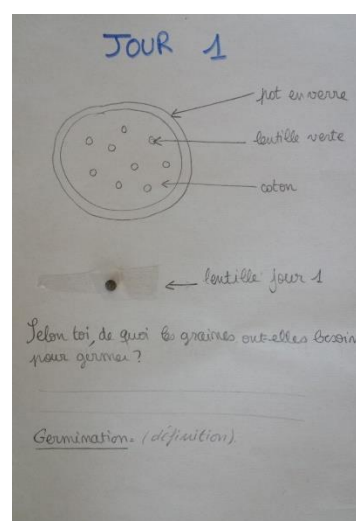 JOUR 1
pot en verre
lentille verte
coton
lentille jour 1
Selon toi, de quoi les graines ont-elles besoin
pour germer ?
Germination. (définition)